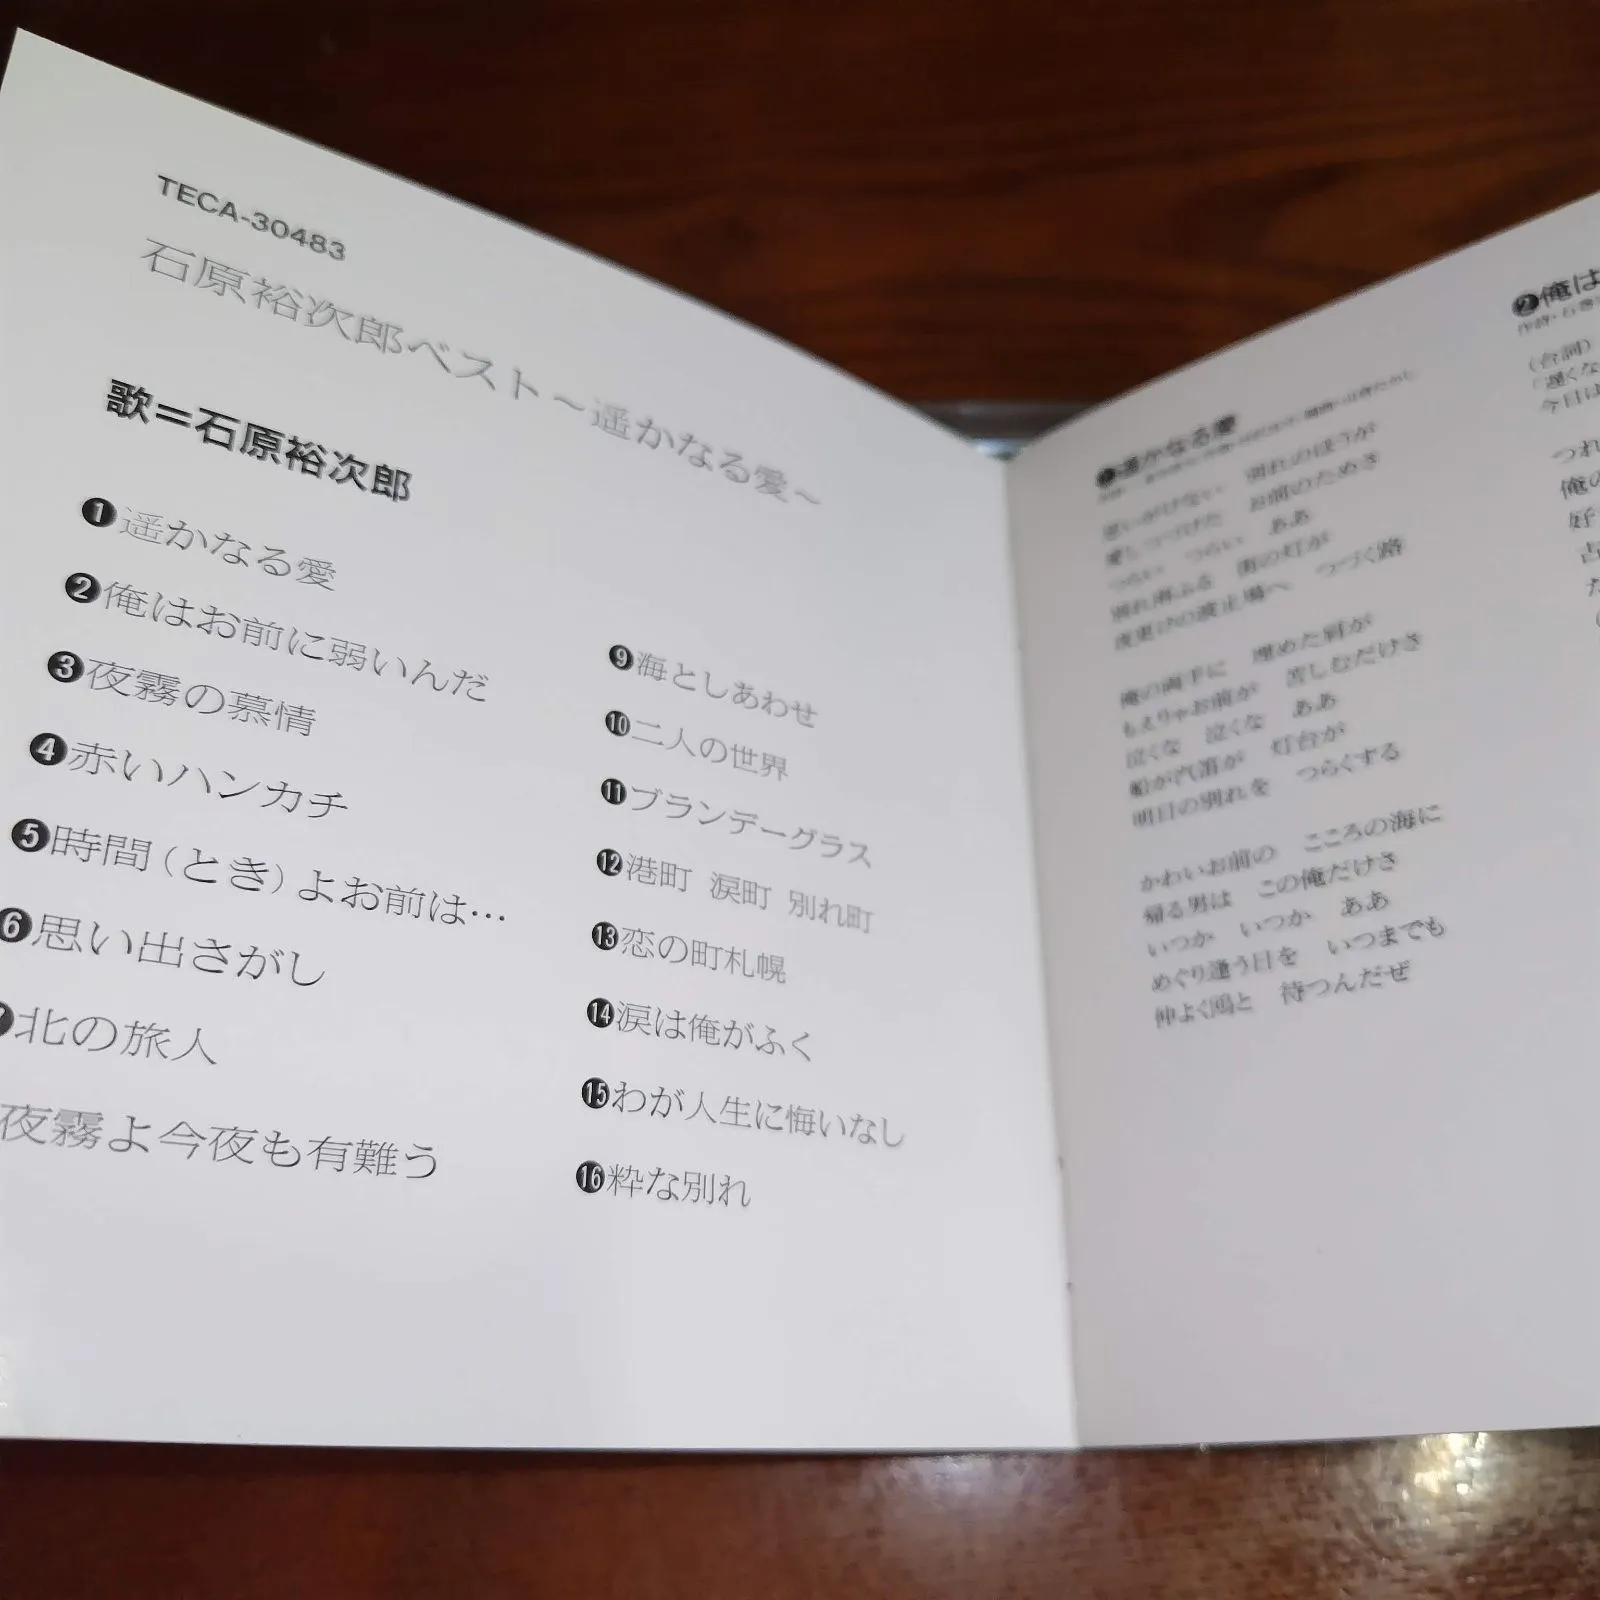 TECA-30483
石原裕次郎ベスト～遥かなる愛～
歌＝石原裕次郎
❶遥かなる愛
❷俺はお前に弱いんだ
❸夜霧の慕情
❹赤いハンカチ
❺時間(とき)よお前は…
❻思い出さがし
❼北の旅人
夜霧よ今夜も有難う
❾海としあわせ
❿二人の世界
⓫ブランデーグラス
⓬港町 涙町 別れ町
⓭恋の町札幌
⓮涙は俺がふく
⓯わが人生に悔いなし
⓰粋な別れ
❶遥かなる愛
思いがけない 別れのほうが
愛しつづけた お前のためさ
つらい つらい ああ
別れ雨ふる 街の灯が
夜更けの波止場へ つづく路
俺の両手に 埋めた肩が
もえりゃお前が 苦しむだけさ
泣くな 泣くな ああ
船が汽笛が 灯台が
明日の別れを つらくする
かわいお前の こころの海に
帰る男は この俺だけさ
いつか いつか ああ
めぐり逢う日を いつまでも
仲よく鴎と 待つんだぜ
❷俺は
(台詞)
「遅くな
今日は
つれ
俺の
好